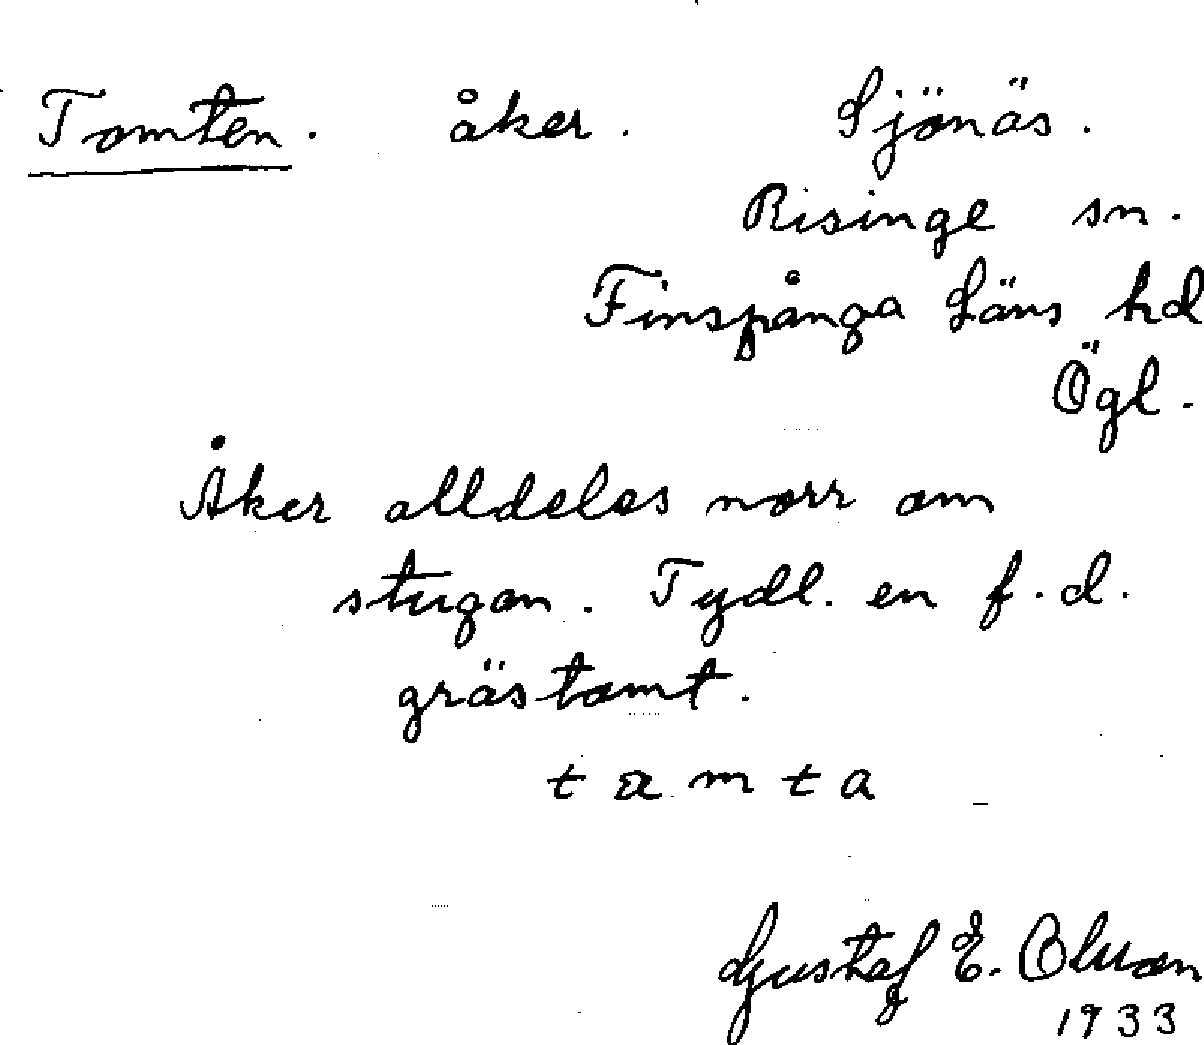 Tomten. åker. Sjönäs.
Risinge sn.
Finspånga Läns hd
Ögl.
Åker alldeles norr om
stugan. Tydl. en f.d.
grästomt.
Gustaf E. Olsson
1933